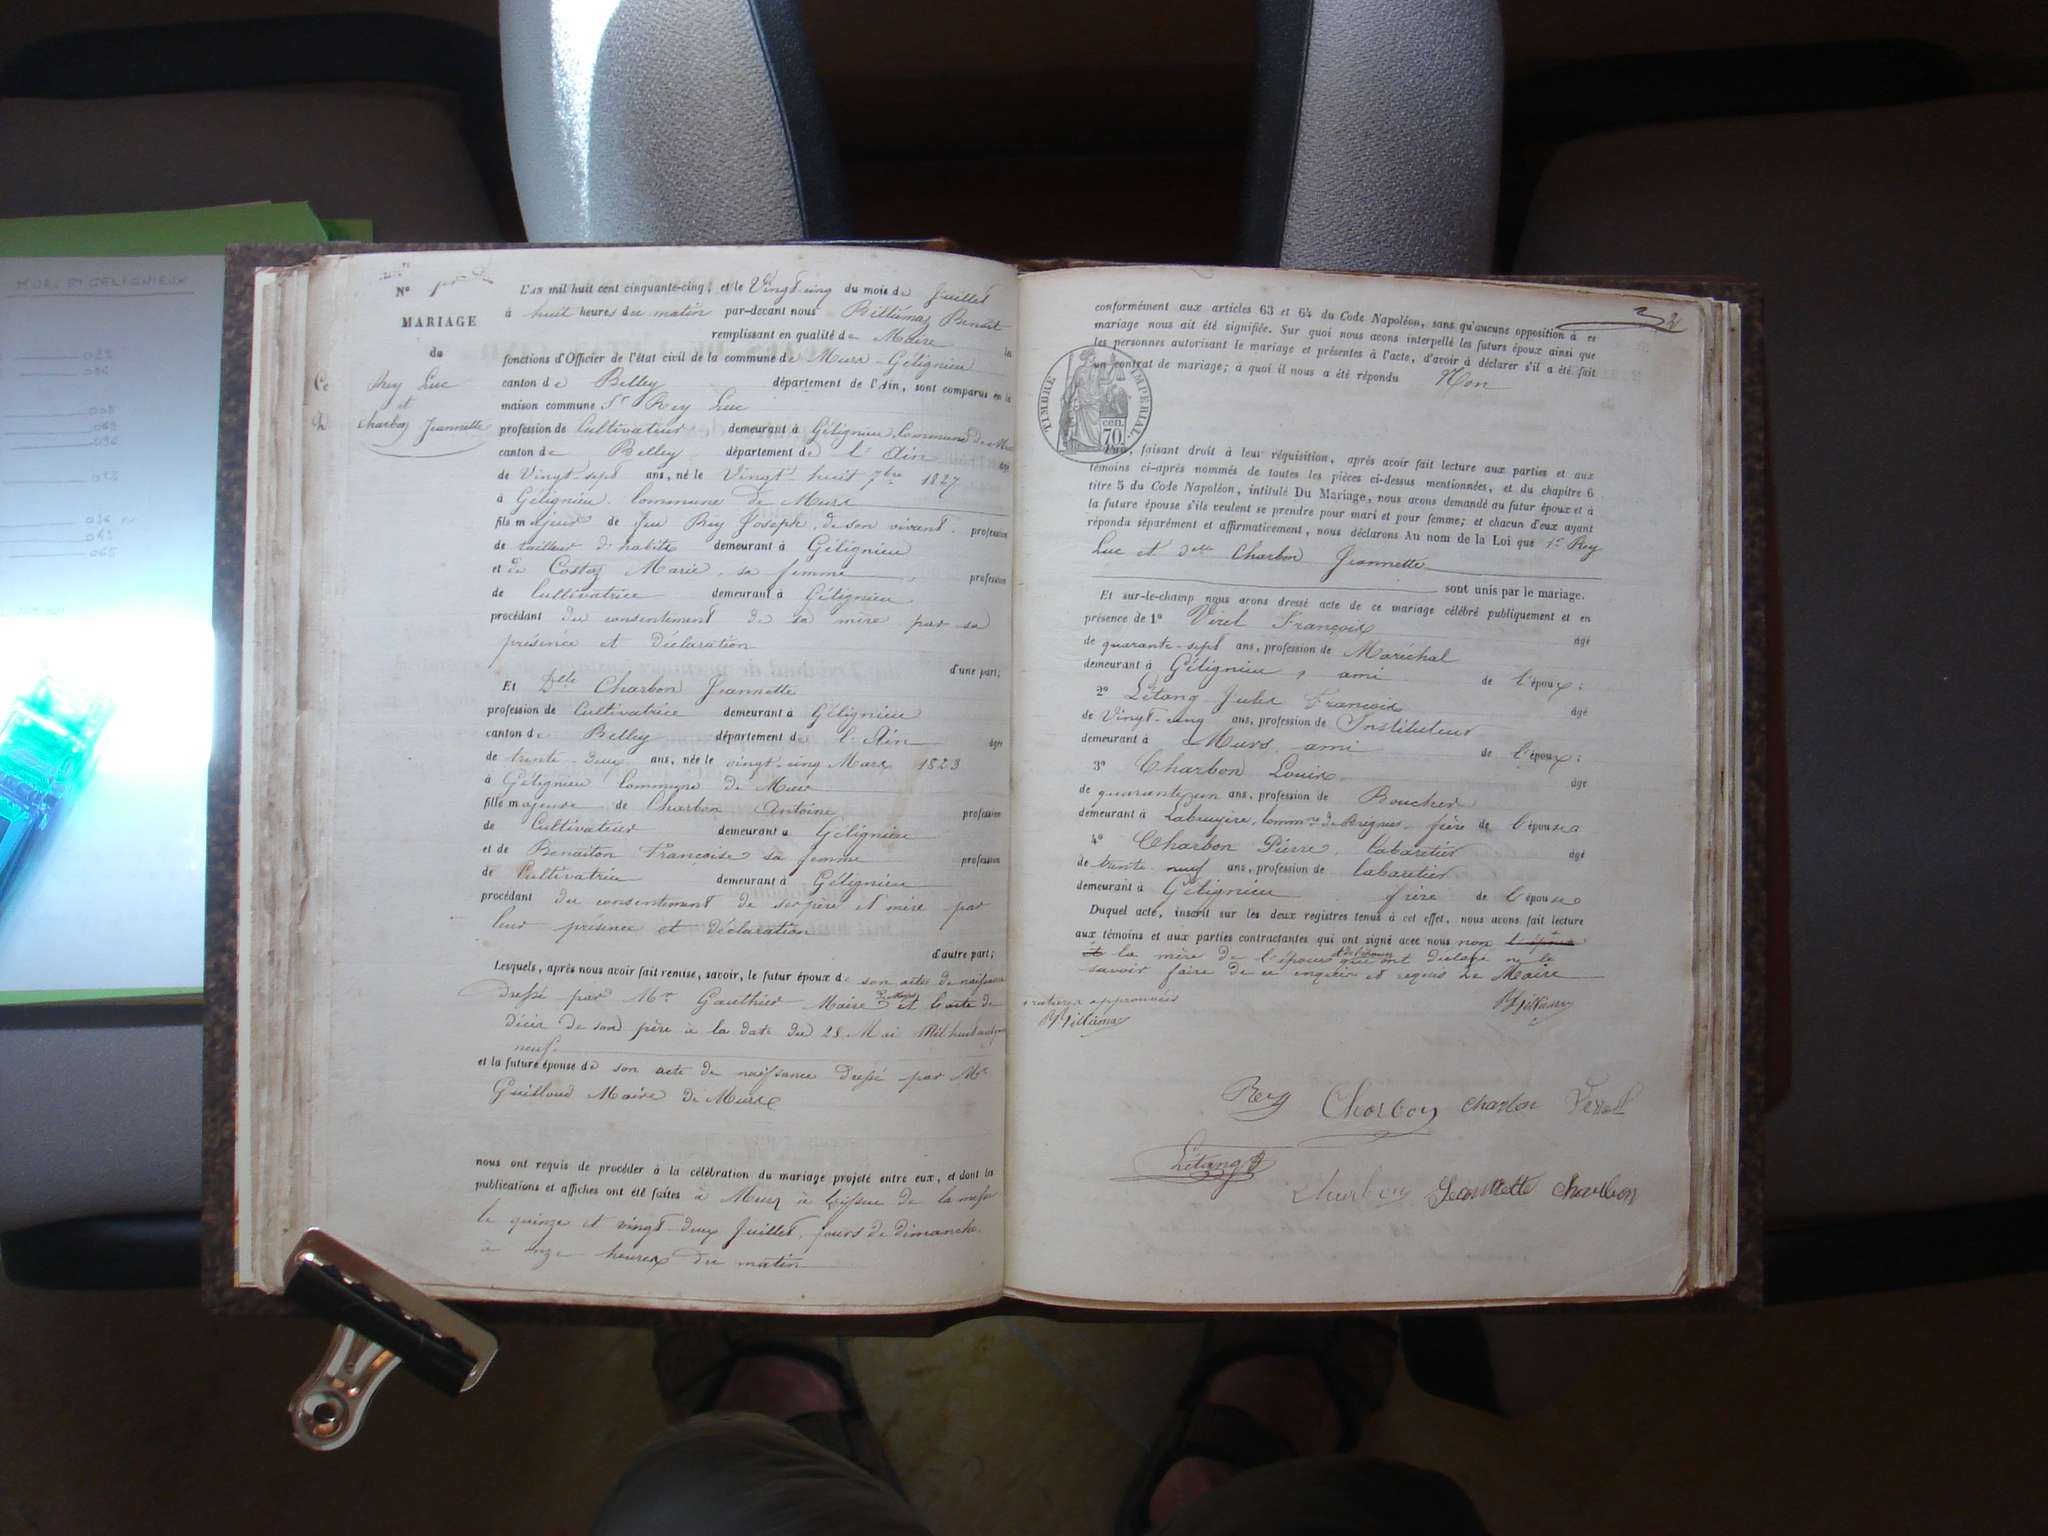 MURS ET GELIGNIEUX
Nº 1er
MARIAGE
du
Rey Luc
et
Charbon Jeannette
L'AN mil huit cent cinquante-cinq, et le Vingt-cinq du mois de Juillet
à huit heures du matin par-devant nous Billiémaz Benoît
remplissant en qualité de Maire les
fonctions d'Officier de l'état civil de la commune de Murs-Gélignieu
canton de Belley département de l'Ain, sont comparus en la
maison commune Sr Rey Luc
profession de Cultivateur demeurant à Gélignieu Commune de Murs
canton de Belley département de l'Ain âgé
de Vingt-sept ans, né le Vingt-huit 7bre 1827
à Gélignieu Commune de Murs
fils majeur de feu Rey Joseph, de son vivant profession
de tailleur d'habits demeurant à Gélignieu
et de Costaz Marie, sa femme profession
de Cultivatrice demeurant à Gélignieu
procédant du consentement de sa mère par sa
présence et déclaration
d'une part;
Et Dlle Charbon Jeannette
profession de Cultivatrice demeurant à Gélignieu
canton de Belley département de l'Ain âgée
de trente-deux ans, née le vingt-cinq Mars 1823
à Gélignieu Commune de Murs
fille majeure de Charbon Antoine profession
de Cultivateur demeurant à Gélignieu
et de Benaiton Françoise sa femme profession
de Cultivatrice demeurant à Gélignieu
procédant du consentement de ses père et mère par
leur présence et déclaration
d'autre part;
Lesquels, après nous avoir fait remise, savoir, le futur époux de son acte de naissance
dressé par Mr Gauthier Maire de Murs et l'acte de
décès de son père à la date du 28 Mai Mil huit cent
neuf.
et la future épouse de son acte de naissance dressé par Mr
Guilloud Maire de Murs
nous ont requis de procéder à la célébration du mariage projeté entre eux, et dont les
publications et affiches ont été faites à Murs à l'issue de la messe
le quinze et vingt-deux Juillet, jours de dimanche
à onze heures du matin
2
conformément aux articles 63 et 64 du Code Napoléon, sans qu'aucune opposition à ce
mariage nous ait été signifiée. Sur quoi nous avons interpellé les futurs époux ainsi que
les personnes autorisant le mariage et présentes à l'acte, d'avoir à déclarer s'il a été fait
un contrat de mariage; à quoi il nous a été répondu Non
TIMBRE IMPÉRIAL
70 CEN.
Puis, faisant droit à leur réquisition, après avoir fait lecture aux parties et aux
témoins ci-après nommés de toutes les pièces ci-dessus mentionnées, et du chapitre 6
titre 5 du Code Napoléon, intitulé Du Mariage, nous avons demandé au futur époux et à
la future épouse s'ils veulent se prendre pour mari et pour femme; et chacun d'eux ayant
répondu séparément et affirmativement, nous déclarons Au nom de la Loi que Sr Rey
Luc et Dlle Charbon Jeannette
sont unis par le mariage.
Et sur-le-champ nous avons dressé acte de ce mariage célébré publiquement et en
présence de 1º Virel François âgé
de quarante-sept ans, profession de Maréchal
demeurant à Gélignieu, ami de l'époux;
2º Létang Jules François âgé
de Vingt-cinq ans, profession de Instituteur
demeurant à Murs, ami de l'époux;
3º Charbon Louis âgé
de quarante-un ans, profession de Boucher
demeurant à Labruyère, comme de Bregnier, frère de l'épouse
4º Charbon Pierre, Cabaretier âgé
de trente-neuf ans, profession de Cabaretier
demeurant à Gélignieu frère de l'épouse
Duquel acte, inscrit sur les deux registres tenus à cet effet, nous avons fait lecture
aux témoins et aux parties contractantes qui ont signé avec nous non l'épouse
et la mère de l'époux et de l'épouse qui ont déclaré ne le
savoir faire de ce enquises et requis Le Maire
ratures approuvées
Billiémaz
Billiémaz
Rey Charbon Charbon Virell
Létang J
Charbon Jeannette Charbon